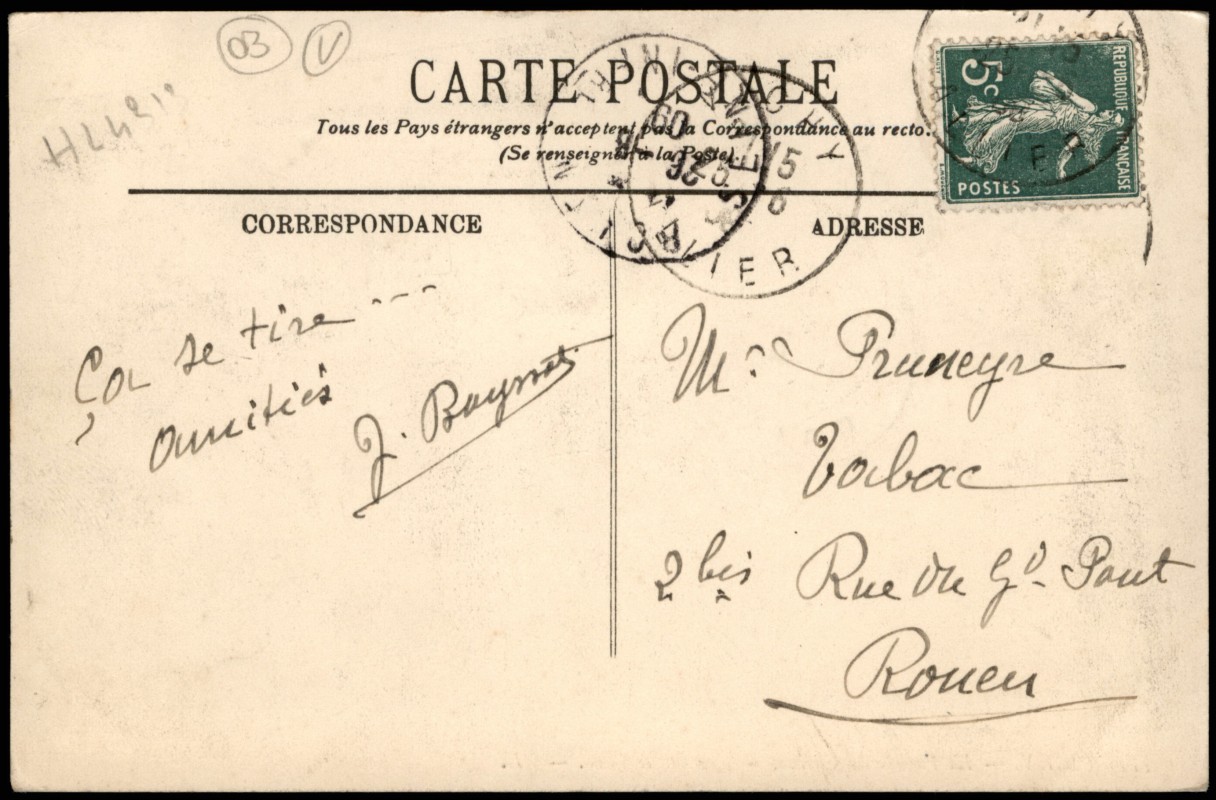 03 V
CARTE POSTALE
Tous les Pays étrangers n'acceptent pas la Correspondance au recto.
(Se renseigner à la Poste).
5c
REPUBLIQUE FRANÇAISE
POSTES
CORRESPONDANCE
ADRESSE
Ça se tire ---
amitiés
J.
Mr Pruneyre
Tabac
2 bis Rue du Gd Pont
Rouen